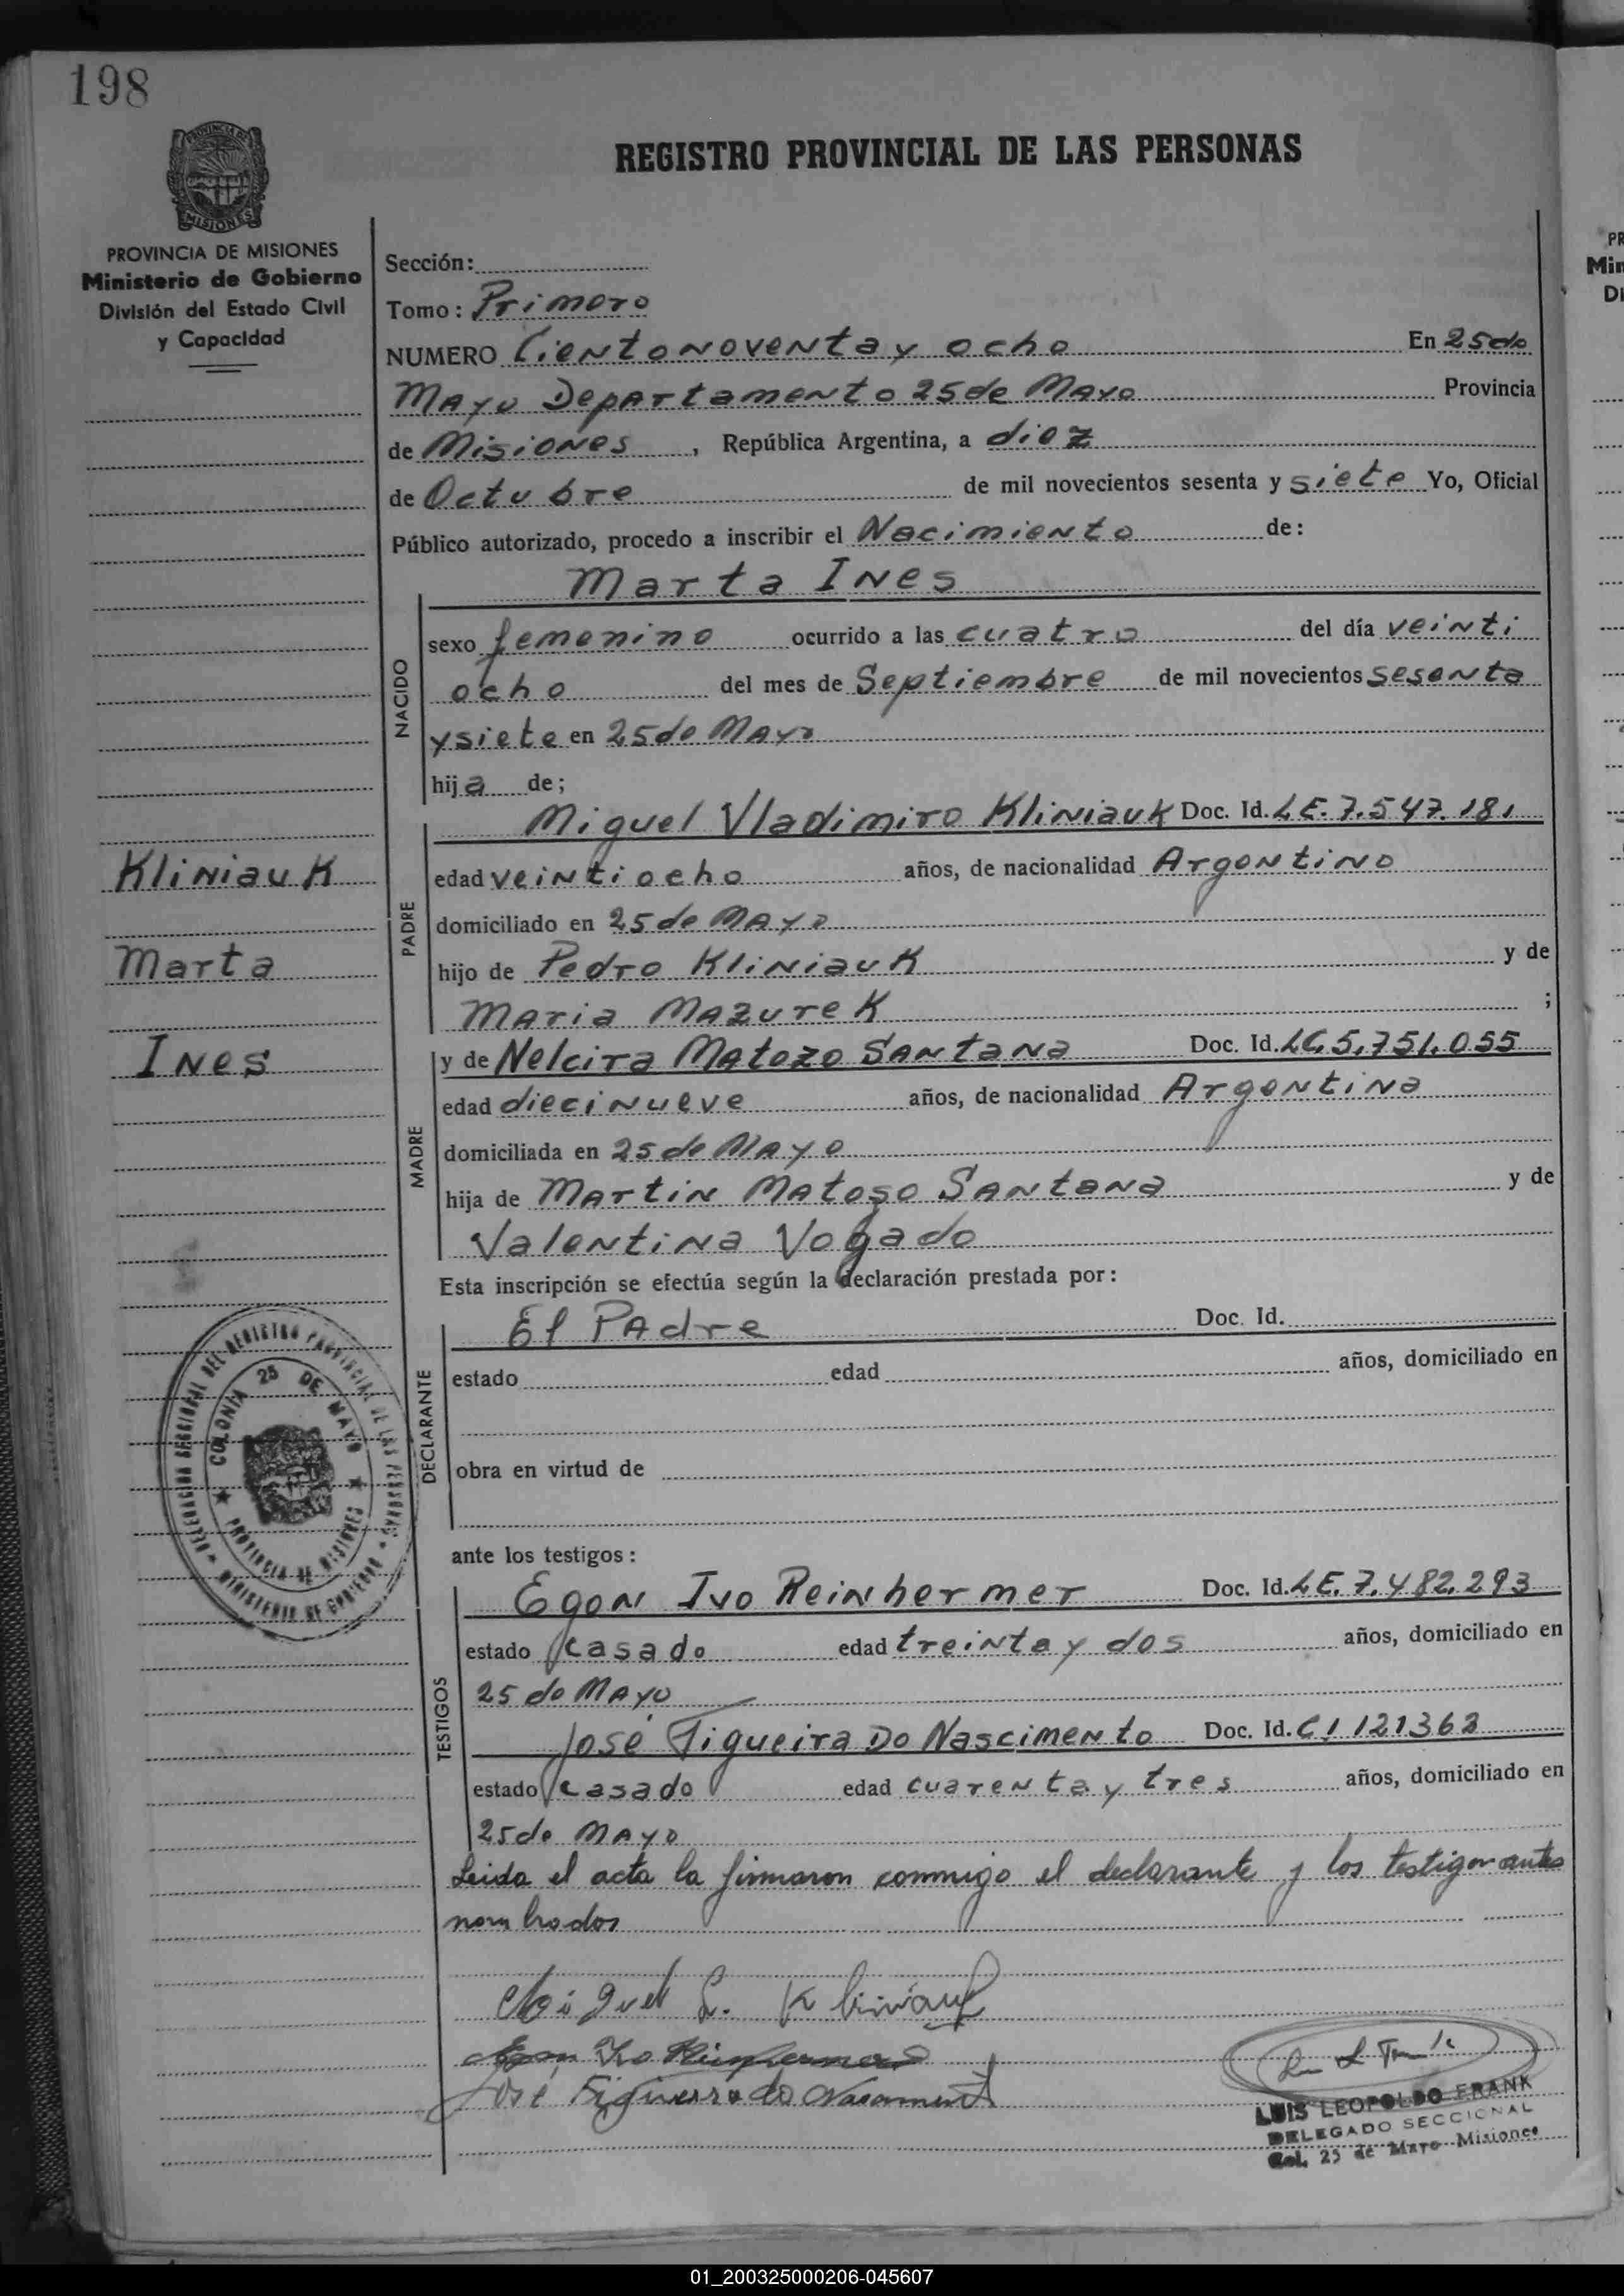 198
PROVINCIA DE
MISIONES
REGISTRO PROVINCIAL DE LAS PERSONAS
PROVINCIA DE MISIONES
Ministerio de Gobierno
División del Estado Civil
y Capacidad
Sección:
Tomo: Primero
NUMERO Ciento noventa y ocho En 25 de
Mayo Departamento 25 de Mayo Provincia
de Misiones, República Argentina, a diez
de Octubre de mil novecientos sesenta y siete Yo, Oficial
Público autorizado, procedo a inscribir el Nacimiento de:
Marta Ines
NACIDO
sexo femenino ocurrido a las cuatro del día veinti
ocho del mes de Septiembre de mil novecientos sesenta
y siete en 25 de Mayo
hija de;
Miguel Vladimiro Kliniauk Doc. Id. LE. 7.547.181
PADRE
Kliniauk
edad veintiocho años, de nacionalidad Argentino
domiciliado en 25 de Mayo
Marta
hijo de Pedro Kliniauk y de
Maria Mazurek ;
Ines
y de Nelcira Matozo Santana Doc. Id. LC 5.751.055
MADRE
edad diecinueve años, de nacionalidad Argentina
domiciliada en 25 de Mayo
hija de Martin Matoso Santana y de
Valentina Vogado
Esta inscripción se efectúa según la declaración prestada por:
El Padre Doc. Id.
DECLARANTE
estado edad años, domiciliado en
obra en virtud de
DELEGACION SECCIONAL DEL REGISTRO PROVINCIAL DE LAS PERSONAS
MINISTERIO DE GOBIERNO
COLONIA 25 DE MAYO
PROVINCIA DE MISIONES
ante los testigos:
TESTIGOS
Egon Ivo Reinhermer Doc. Id. LE. 7.482.293
estado casado edad treinta y dos años, domiciliado en
25 de Mayo
José Figueira Do Nascimento Doc. Id. CI 121363
estado casado edad cuarenta y tres años, domiciliado en
25 de Mayo
Leida el acta la firmaron conmigo el declarante y los testigos antes
nombrados
Miguel L. Kliniauk
Ivo
José Figuerra do Nasciment
LUIS LEOPOLDO FRANK
DELEGADO SECCIONAL
Col. 25 de Mayo Misiones
PR
Min
Di
01_200325000206-045607